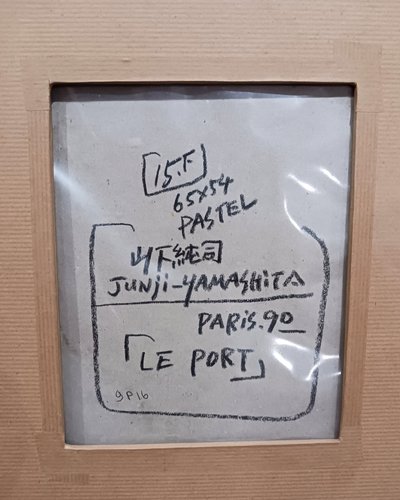 15.F
65X54
PASTEL
山下純司
JUNJi-YAMASHiTA
PARiS.90
「LE PORT」
9P16